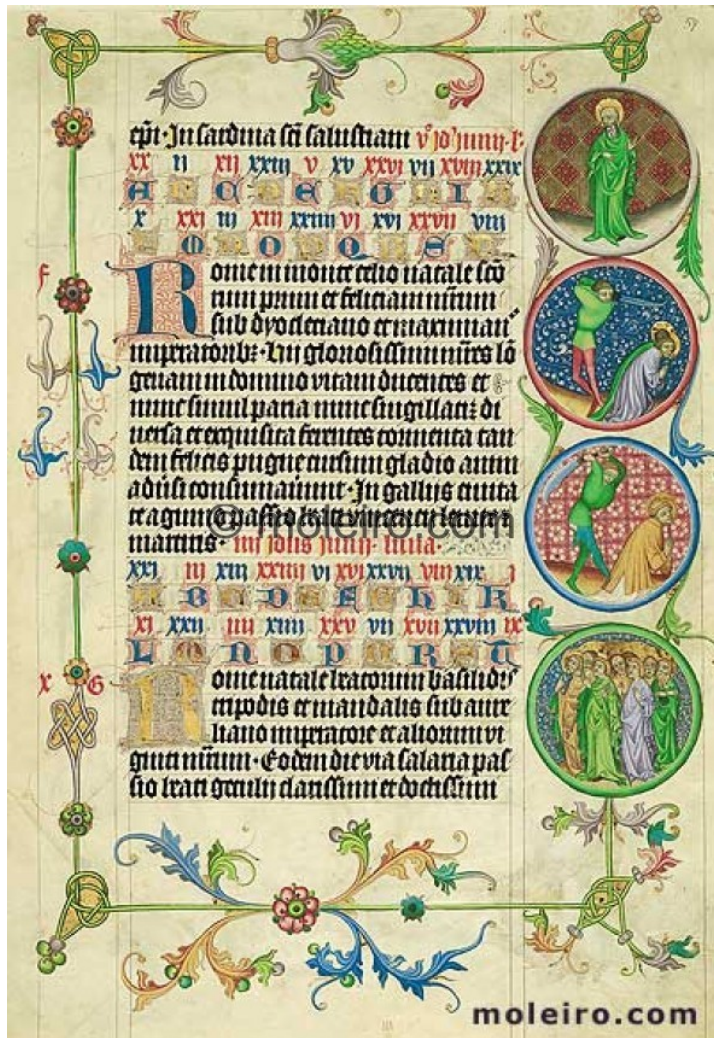 epi · In sardinia sci salustiani v° id' iunij ·
xx ii xii xxiii v xv xxvi vii xviii xxix
A C E G I
x xxi iii xiii xxiiii vi xvi xxvii viii
M O Q S
f Rome in monte celio natale sco
rum primi et feliciani mrum
sub dyocletiano et maximiano
imperatoribz · Hii gloriosissimi mres lo
geuam in domino vitam ducentes et
nunc simul paria nunc singillatiz di
uersa et exquisita ferentes tormenta tan
dem felicis pugne cursum gladio anim
aduersi consumauerunt · In gallijs ciuita
te agunni passio beati vincencij leuite et
martiris · iiij idus iunij · luna ·
xxi iii xiii xxiiii vi xvi xxvii viii xix i
B D F H K
xi xxii iiii xiiii xxv vii xvii xxviii ix
L N P R T
X G Rome natale beatorum basilidis
tripodis et mandalis sub aure
liano imperatore et aliorum vi
ginti mrum · Eodem die via salaria pas
sio beati getulij clarissimi et doctissimi
© moleiro.com
moleiro.com